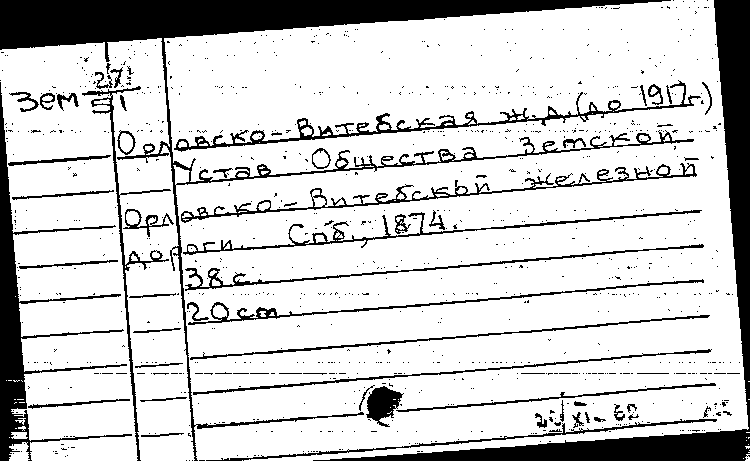 Зем 27/51
Орловско-Витебская ж.д. (до 1917г.)
Устав Общества Земской
Орловско-Витебской железной
дороги. Спб., 1874.
38 с.
20 cm.
XI-62